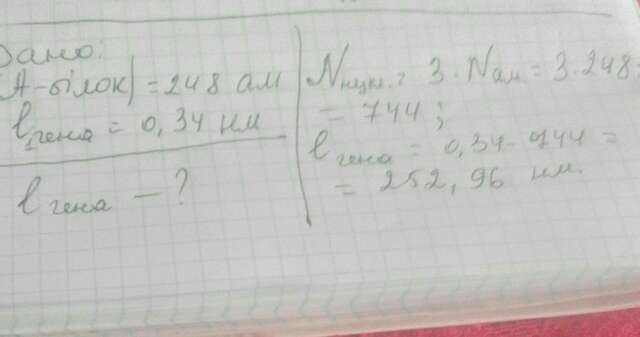 Дано:
(А-білок) = 248 ам
l₁гена = 0,34 нм
l гена - ?
Nнукл. = 3 · Nам = 3 · 248 =
= 744;
l гена = 0,34 · 744 =
= 252,96 нм.